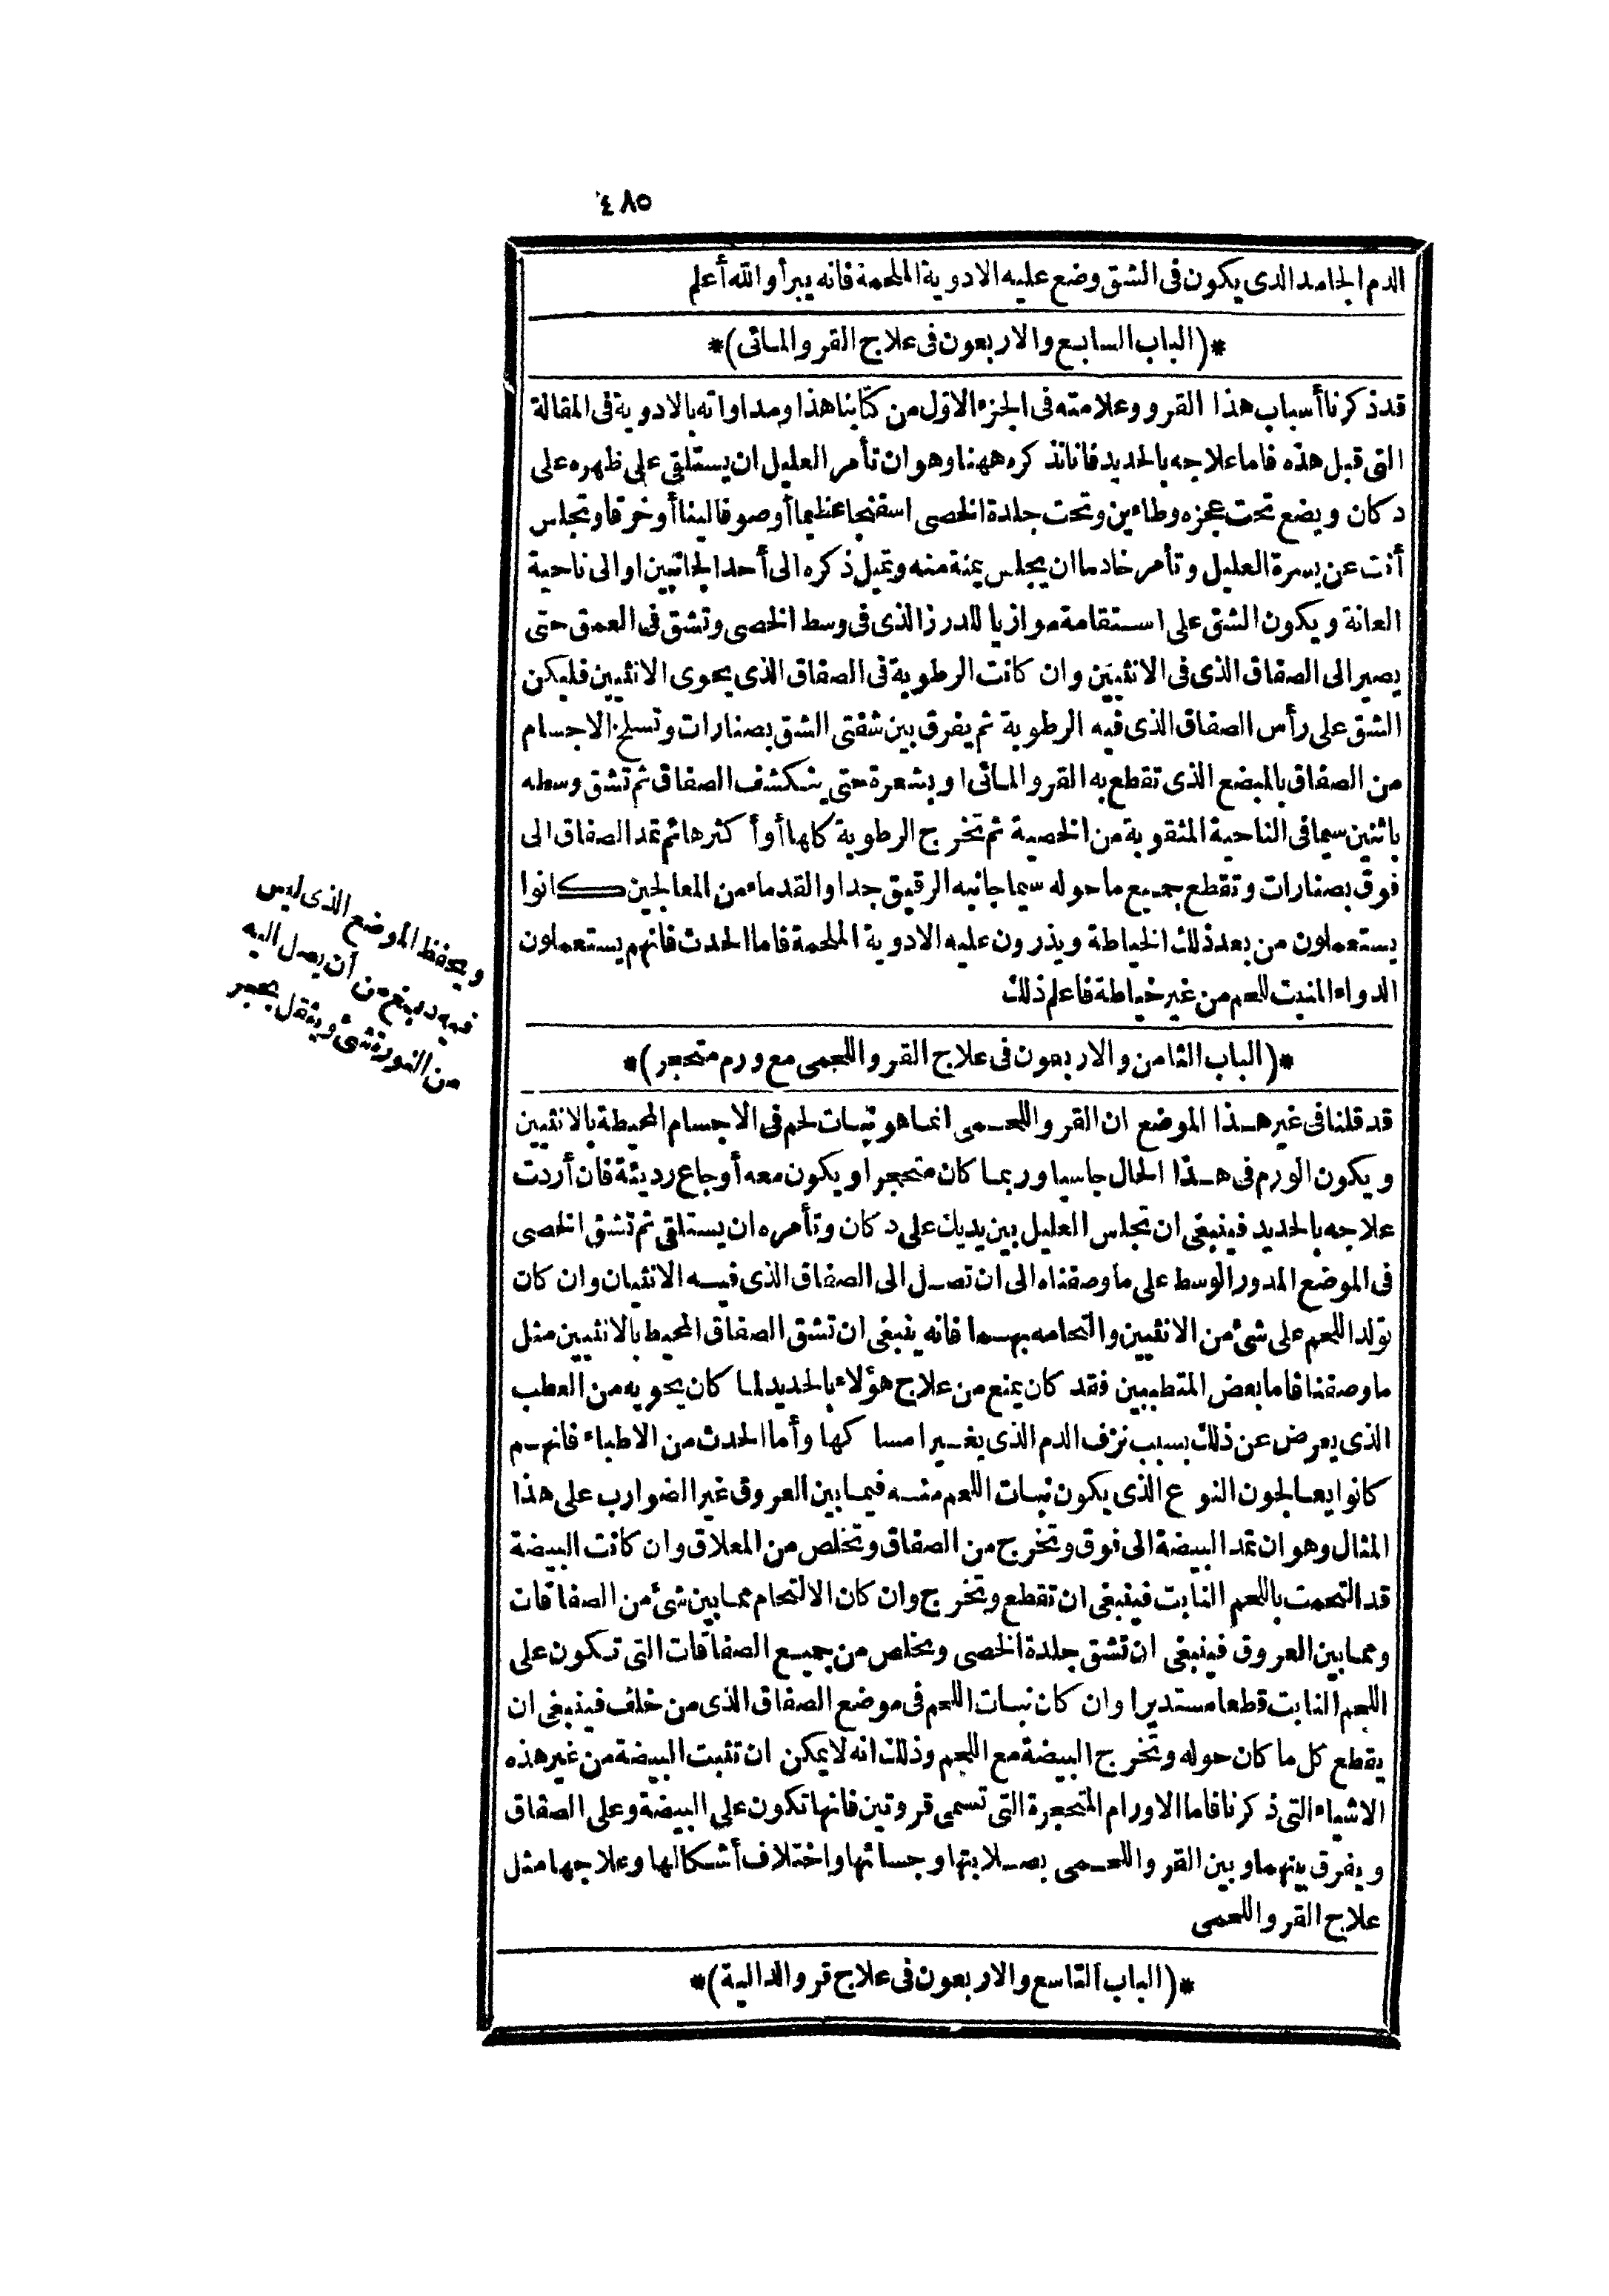 ٤٨٥
الدم الجامد الدى يكون فى الشق وضع عليه الادوية الملحمة فانه يبرأ والله أعلم
*(الباب السابع والاربعون فى علاج القر والمائى)*
قد ذكرنا أسباب هذا القرو وعلامته فى الجزء الاول من كتابنا هذا ومداواته بالادوية فى المقالة
التى قبل هذه فاما علاجه بالحديد فانا نذكره ههنا وهو ان تأمر العليل ان يستلقى على ظهره على
دكان ويضع تحت عجزه وطاءين وتحت جلدة الخصى اسفنجا عظيما أو صوفا لينا أو خرقا وتجلس
أنت عن يسرة العليل وتأمر خادما ان يجلس يمنة منه وتميل ذكره الى أحد الجانبين او الى ناحية
العانة ويكون الشق على استقامة موازيا للدرز الذى فى وسط الخصى وتشق فى العمق حتى
يصير الى الصفاق الذى فى الانثيين وان كانت الرطوبة فى الصفاق الذى يحوى الانثيين فليكن
الشق على رأس الصفاق الذى فيه الرطوبة ثم يفرق بين شفتى الشق بصنارات وتسلخ الاجسام
من الصفاق بالمبضع الذى تقطع به القرو المائى او بشعرة حتى ينكشف الصفاق ثم تشق وسطه
باثنين سيما فى الناحية المثقوبة من الخصية ثم تخرج الرطوبة كلها أو أكثرها ثم تمد الصفاق الى
فوق بصنارات وتقطع جميع ما حوله سيما جانبه الرقيق جدا والقدماء من المعالجين كانوا
يستعملون من بعد ذلك الخياطة ويذرون عليه الادوية الملحمة فاما الحدث فانهم يستعملون
الدواء المنبت للحم من غير خياطة فاعلم ذلك
ويحفظ الموضع الذى ليس
فيه دبغ من أن يصل اليه
من النورة شئ ويثقل بحجر
*(الباب الثامن والاربعون فى علاج القر واللحمى مع ورم متحجر)*
قد قلنا فى غير هذا الموضع ان القر واللحمى انما هو نبات لحم فى الاجسام المحيطة بالانثيين
ويكون الورم فى هذا الحال جاسيا وربما كان متحجرا ويكون معه أوجاع رديئة فان أردت
علاجه بالحديد فينبغى ان تجلس العليل بين يديك على دكان وتأمره ان يستلقى ثم تشق الخصى
فى الموضع المدور الوسط على ما وصفناه الى ان تصل الى الصفاق الذى فيه الانثيان وان كان
تولد اللحم على شئ من الانثيين والتحامه بهما فانه ينبغى ان تشق الصفاق المحيط بالانثيين مثل
ما وصفنا فاما بعض المتطببين فقد كان يمنع من علاج هؤلاء بالحديد لما كان يحويه من العطب
الذى يعرض عن ذلك بسبب نزف الدم الذى يغير امساكها وأما الحدث من الاطباء فانهم
كانوا يعالجون النوع الذى يكون نبات اللحم منه فيما بين العروق غير الضوارب على هذا
المثال وهو ان تمد البيضة الى فوق وتخرج من الصفاق وتخلص من المعلاق وان كانت البيضة
قد التحمت باللحم النابت فينبغى ان تقطع وتخرج وان كان الالتحام مما بين شئ من الصفاقات
ومما بين العروق فينبغى ان تشق جلدة الخصى ويخلص من جميع الصفاقات التى تكون على
اللحم النابت قطعا مستديرا وان كان نبات اللحم فى موضع الصفاق الذى من خلف فينبغى ان
يقطع كل ما كان حوله وتخرج البيضة مع اللحم وذلك انه لا يمكن ان تثبت البيضة من غير هذه
الاشياء التى ذكرنا فاما الاورام المتحجرة التى تسمى قروتين فانها تكون على البيضة وعلى الصفاق
ويفرق بينهما وبين القر واللحمى بصلابتها وجسائها واختلاف أشكالها وعلاجها مثل
علاج القر واللحمى
*(الباب التاسع والاربعون فى علاج قر والدالية)*